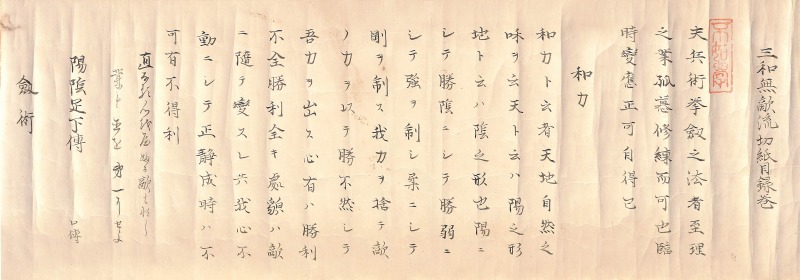 三和無敵流切紙目録巻
夫兵術拳劔之法者至理
之業孤意修練而可也臨
時變應正可自得已
和力
和力ト云者天地自然之
味ヲ云天ト云ハ陽之形
地ト云ハ陰之形也陽ニ
シテ勝陰ニシテ勝弱ニ
シテ強ヲ制シ柔ニシテ
剛ヲ制ス我力ヲ捨テ敵
ノ力ヲ以テ勝不然シテ
吾力ヲ出ス心有ハ勝利
不全勝利全キ處貌ハ敵
ニ隨テ變スレ共我心不
動ニシテ正静成時ハ不
可有不得利
陽陰足下傳 口傳
劔術